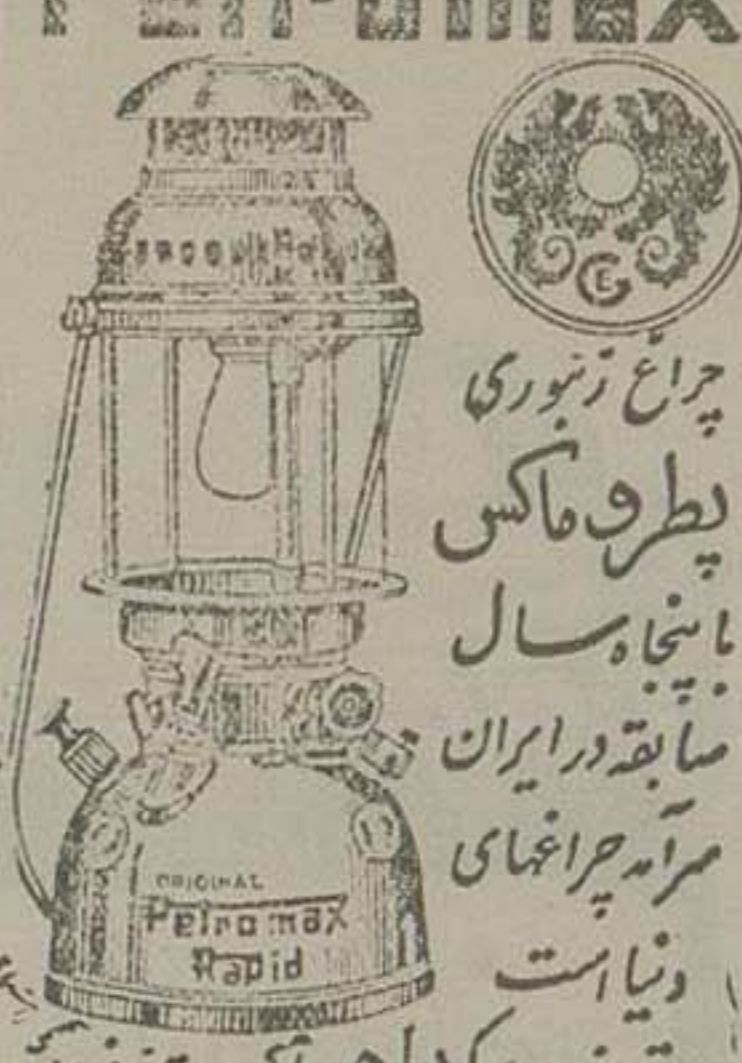 Petromax
چراغ زنبوری
پطروماکس
با پنجاه سال
سابقه در ایران
سرآمد چراغهای
دنیا است
ORIGINAL
Petromax
Rapid